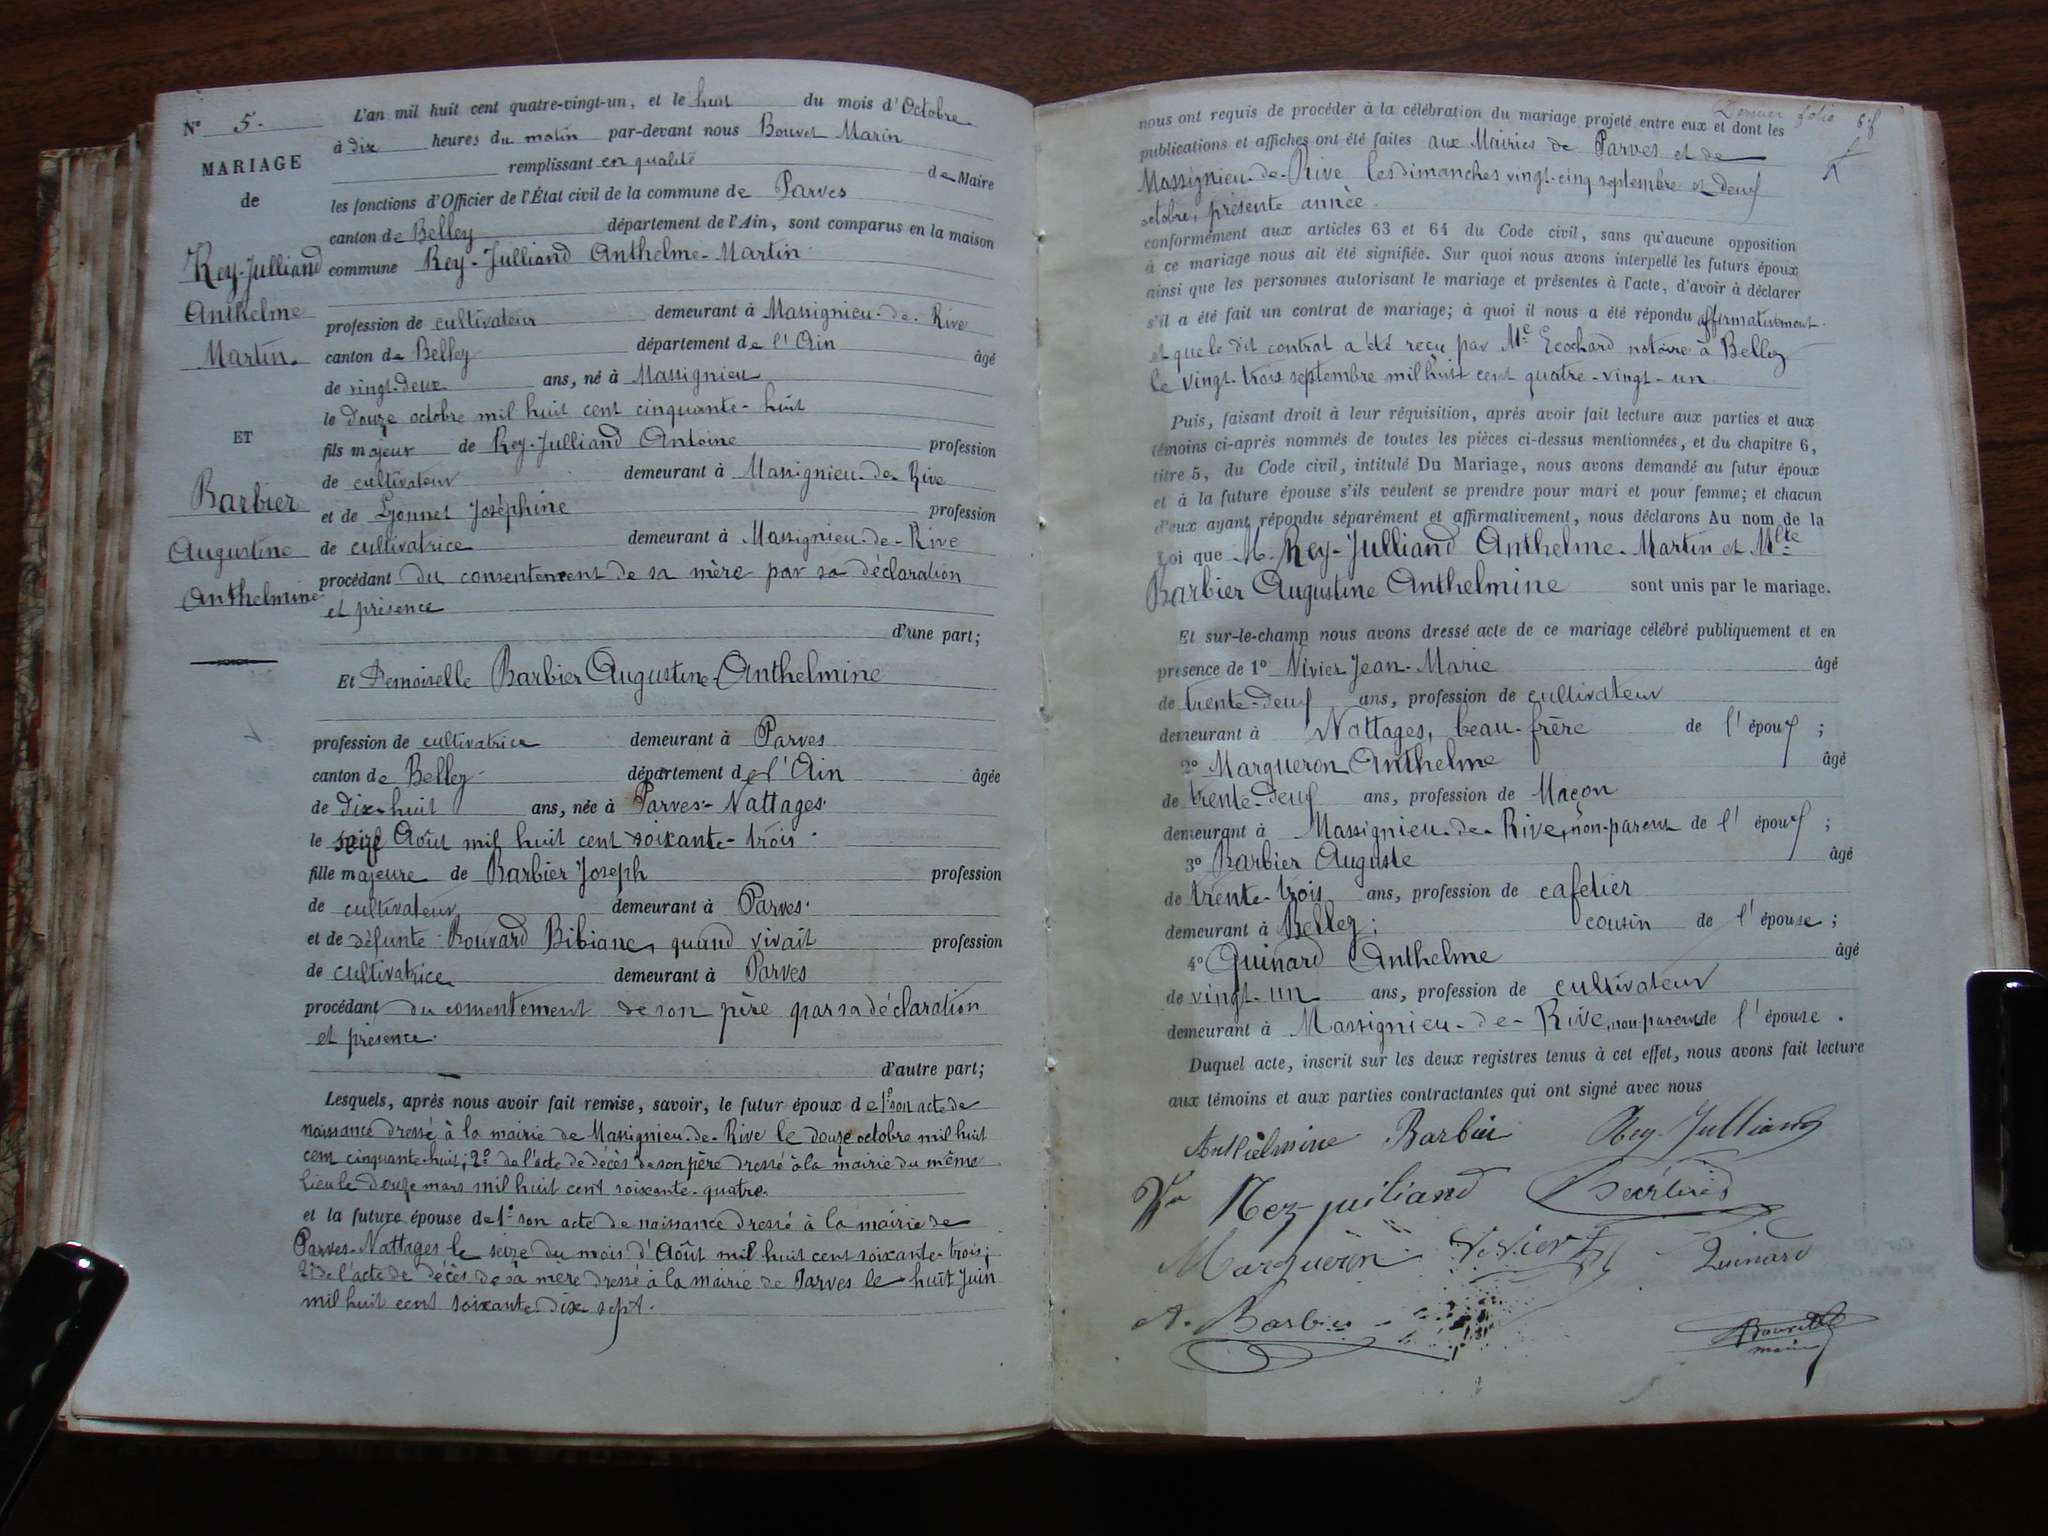 N° 5.
MARIAGE
de
Rey-Julliand
Anthelme
Martin.
ET
Barbier
Augustine
Anthelmine
L'an mil huit cent quatre-vingt-un, et le huit du mois d'Octobre
à dix heures du matin par-devant nous Bouvet Marin
remplissant en qualité de Maire
les fonctions d'Officier de l'État civil de la commune de Parves
canton de Belley département de l'Ain, sont comparus en la maison
commune Rey-Julliand Anthelme-Martin
profession de cultivateur demeurant à Massignieu-de-Rive
canton de Belley département de l'Ain âgé
de vingt-deux ans, né à Massignieu
le douze octobre mil huit cent cinquante-huit
fils majeur de Rey-Julliand Antoine profession
de cultivateur demeurant à Massignieu-de-Rive
et de Gonnet Joséphine profession
de cultivatrice demeurant à Massignieu-de-Rive
procédant du consentement de sa mère par sa déclaration
et présence
d'une part;
Et Demoiselle Barbier Augustine-Anthelmine
profession de cultivatrice demeurant à Parves
canton de Belley département de l'Ain âgée
de dix-huit ans, née à Parves-Nattages
le seize Août mil huit cent soixante-trois.
fille majeure de Barbier Joseph profession
de cultivateur demeurant à Parves.
et de défunte Bouvard Bibiane, quand vivait profession
de cultivatrice demeurant à Parves
procédant du consentement de son père par sa déclaration
et présence.
d'autre part;
Lesquels, après nous avoir fait remise, savoir, le futur époux de 1° son acte de
naissance dressé à la mairie de Massignieu-de-Rive le douze octobre mil huit
cent cinquante-huit; 2° de l'acte de décès de son père dressé à la mairie du même
lieu le douze mars mil huit cent soixante-quatre.
et la future épouse de 1° son acte de naissance dressé à la mairie de
Parves-Nattages le seize du mois d'Août mil huit cent soixante-trois;
2° de l'acte de décès de sa mère dressé à la mairie de Parves le huit Juin
mil huit cent soixante dix sept.
Dernier folio
nous ont requis de procéder à la célébration du mariage projeté entre eux et dont les
publications et affiches ont été faites aux Mairies de Parves et de
Massignieu-de-Rive les dimanches vingt-cinq septembre et deux
octobre, présente année.
conformément aux articles 63 et 64 du Code civil, sans qu'aucune opposition
à ce mariage nous ait été signifiée. Sur quoi nous avons interpellé les futurs époux
ainsi que les personnes autorisant le mariage et présentes à l'acte, d'avoir à déclarer
s'il a été fait un contrat de mariage; à quoi il nous a été répondu affirmativement.
et que le dit contrat a été reçu par Me Ecochard notaire à Belley
le vingt-trois septembre mil huit cent quatre-vingt-un
Puis, faisant droit à leur réquisition, après avoir fait lecture aux parties et aux
témoins ci-après nommés de toutes les pièces ci-dessus mentionnées, et du chapitre 6,
titre 5, du Code civil, intitulé Du Mariage, nous avons demandé au futur époux
et à la future épouse s'ils veulent se prendre pour mari et pour femme; et chacun
d'eux ayant répondu séparément et affirmativement, nous déclarons Au nom de la
Loi que M. Rey-Julliand Anthelme-Martin et Mlle
Barbier Augustine Anthelmine sont unis par le mariage.
Et sur-le-champ nous avons dressé acte de ce mariage célébré publiquement et en
présence de 1° Vivier Jean-Marie âgé
de trente-deux ans, profession de cultivateur
demeurant à Nattages, beau-frère de l'époux ;
2° Margueron Anthelme âgé
de trente-deux ans, profession de Maçon
demeurant à Massignieu-de-Rive, non-parent de l'époux ;
3° Barbier Auguste âgé
de trente-trois ans, profession de cafetier
demeurant à Belley; cousin de l'épouse ;
4° Quinard Anthelme âgé
de vingt-un ans, profession de cultivateur
demeurant à Massignieu-de-Rive, non-parent de l'épouse .
Duquel acte, inscrit sur les deux registres tenus à cet effet, nous avons fait lecture
aux témoins et aux parties contractantes qui ont signé avec nous
Anthelmine Barbier Rey-Julliand
Rey-juiliand
Margueron Vivier Quinard
A. Barbier
Bouvet
maire